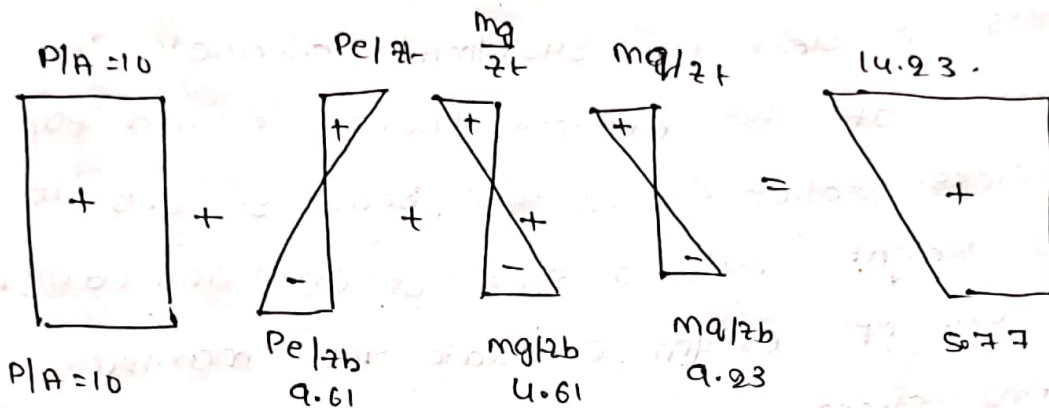 P/A = 10
Pe/zt
mg
zt
mq/zt
14.23.
+ + + + + - + - + - = +
P/A = 10
Pe/zb
9.61
mg/zb
4.61
mq/zb
9.23
5.77